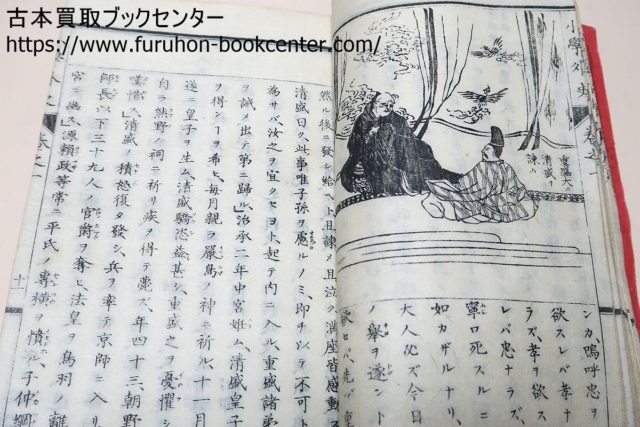 古本買取ブックセンター
https://www.furuhon-bookcenter.com/
小學外史 巻之一
重盛大ニ
清盛ヲ
諫ム
ンカ嗚呼忠ヲ
欲スレバ孝ナ
ラズ、孝ヲ欲ス
レバ忠ナラズ、
寧ロ死スルニ
如カザルナリ、
大人必ズ今日
ノ擧ヲ遂ント
欲セバ、先ヅ重
然ル後ニ發シ給ヘト且諫メ且泣ク、滿座皆感動ス
清盛曰ク、此事唯子孫ヲ慮ルノミ、即チ以テ不可ト
為サバ汝之ヲ宜クセヨト起テ内ニ入ル、重盛諸弟
ヲ誡メ出テ第ニ歸ル」治承二年中宮娠ム、清盛皇子
ヲ得ンヿヲ希ヒ、毎月親ラ嚴島ノ神ニ祈ル、十一月
遂ニ皇子ヲ生ム、清盛驕恣益甚シ、重盛之ヲ憂懼シ
自ラ熊野ノ祠ニ祈リ疾ヲ得テ薨ズ、年四十三、朝野
嘆惜ス」清盛積怒復タ發シ、兵ヲ率テ京師ニ入リ
師長以下三十九人ノ官爵ヲ奪ヒ、法皇ヲ鳥羽ノ離
宮ニ幽ス」源頼政等常ニ平氏ノ專横ヲ憤ル、子仲綱
十一